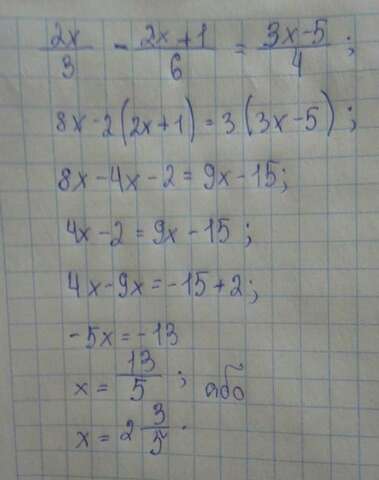 2x/3 - 2x+1/6 = 3x-5/4 ;
8x-2(2x+1)=3(3x-5) ;
8x-4x-2=9x-15;
4x-2=9x-15 ;
4x-9x=-15+2;
-5x=-13
x= 13/5 ; або
x= 2 3/5 .